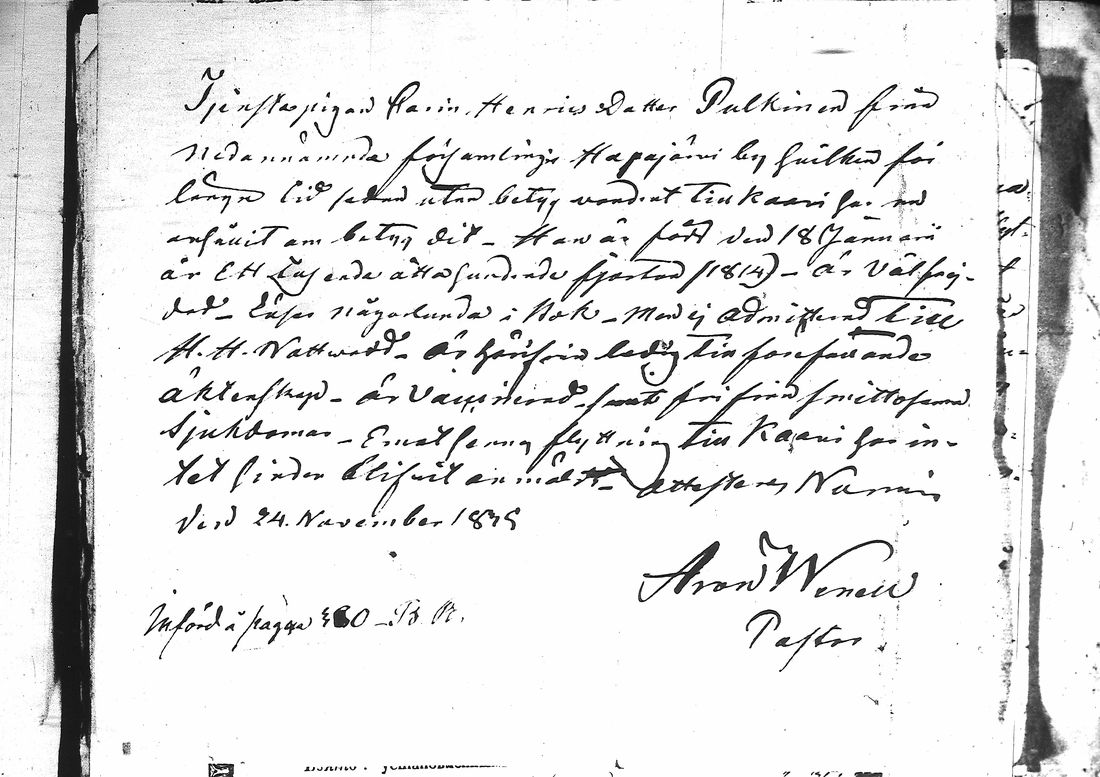 Tjenstepigan Carin Henrics Datter Pulkinen från
Nedannämnde församlings Hapajärvi by hvilken för
längre tid sedan utan betyg vandrat till Kaavi har nu
anhållit om betyg dit – Hon är född den 18 Januarii
år Ett Tusende åtta hundrade fjorton (1814) – är Välfrej-
dad – Läser någorlunda i Bok – Men ej admitterad till
H. H. Nattward – är härifrån ledig till förefallande
äktenskap – är Vaccinerad – samt fri från smittosamma
Sjukdomar – Emot hennes flyttning till Kaavi har in-
tet hinder blifvit anmäldt – Attesteras Nurmis
den 24. November
Aron Wenell
Pastor
Införd å pagina – B. R.